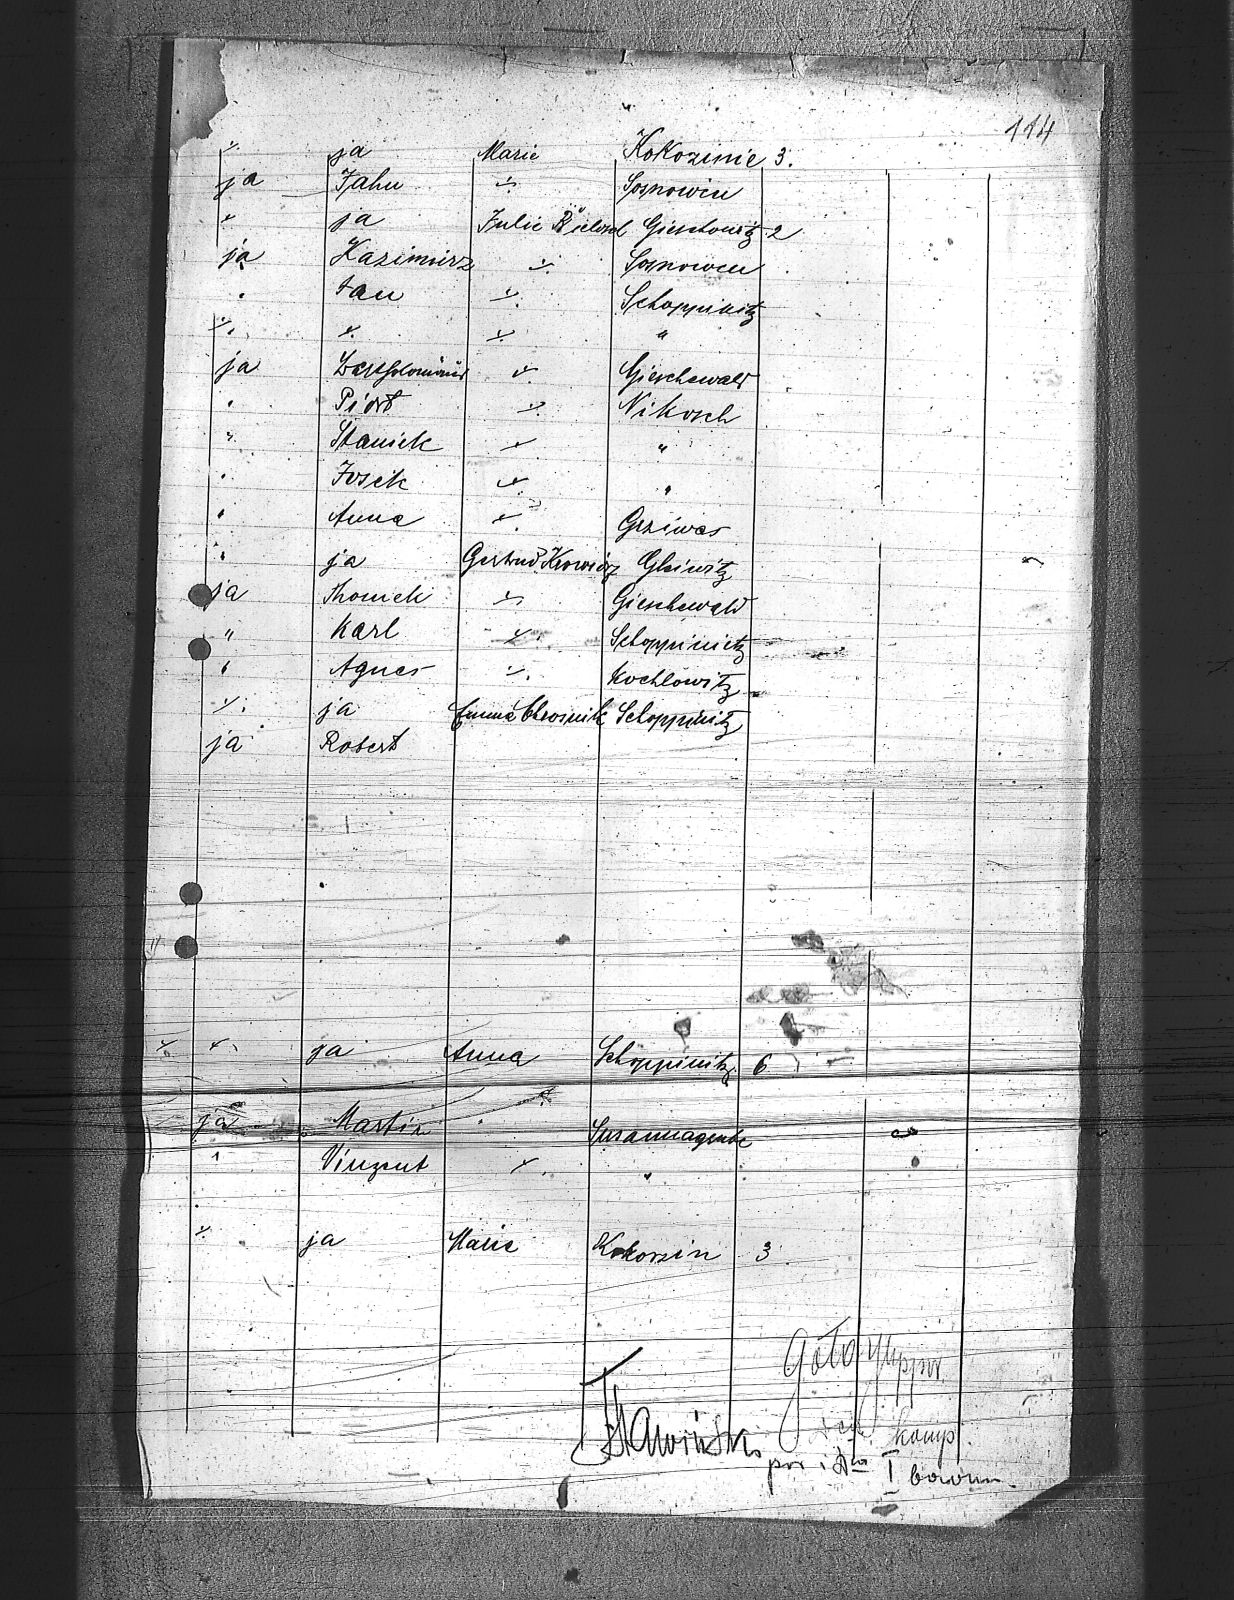 114
ja Marie Kokozinie 3.
ja Jahn Sosnowicu
ja Julie Gieschowitz 2
ja Kazimierz Sosnowicu
Jan Schoppinitz
"
ja Bartholomäus Gieschewald
Piotr Nikosch
" Stanick "
Josek "
Anna Grziwas
ja Gertrud Krowiorz Gleiwitz
ja Thomek Gieschewald
" Karl Schoppinietz
Agnes Kochlowitz
ja Emma Chrosnik Schoppinitz
ja Robert
ja Anna Schoppinitz 6
ja Martin Susannagrube
Vinzent "
ja Marie Kokorzin 3
komp.
I